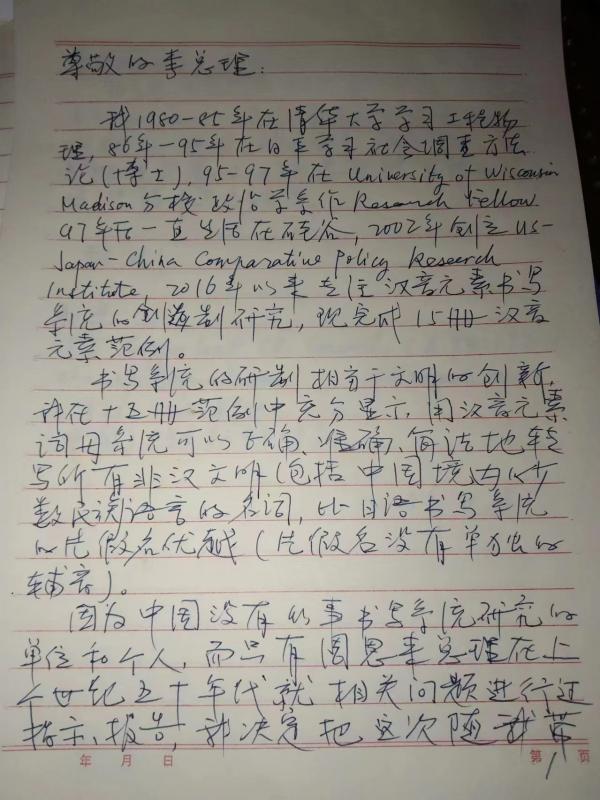 尊敬的李总理：
我1980-85年在清华大学学习工程物
理，86年-95年在日本学习社会调查方法
论（博士），95-97年在 University of Wisconsin
Madison 分校政治学系作 Research Fellow.
97年后一直生活在硅谷，2002年创立 US-
Japan-China Comparative Policy Research
Institute, 2016年以来专注汉音元素书写
系统的创造制研究，现完成15册汉音
元素范例。
书写系统的研制相当于文明的创新，
我在十五册范例中充分显示，用汉音元素
词母系统可以正确、准确、简洁地转
写所有非汉文明（包括中国境内少
数民族语言的名词，比日语书写系统
的片假名优越（片假名没有单独的
辅音）。
因为中国没有从事书写系统研究的
单位和个人，而只有周恩来总理在上
个世纪五十年代就相关问题进行过
指示、报告，我决定把这次随我带
年 月 日
第 1 页